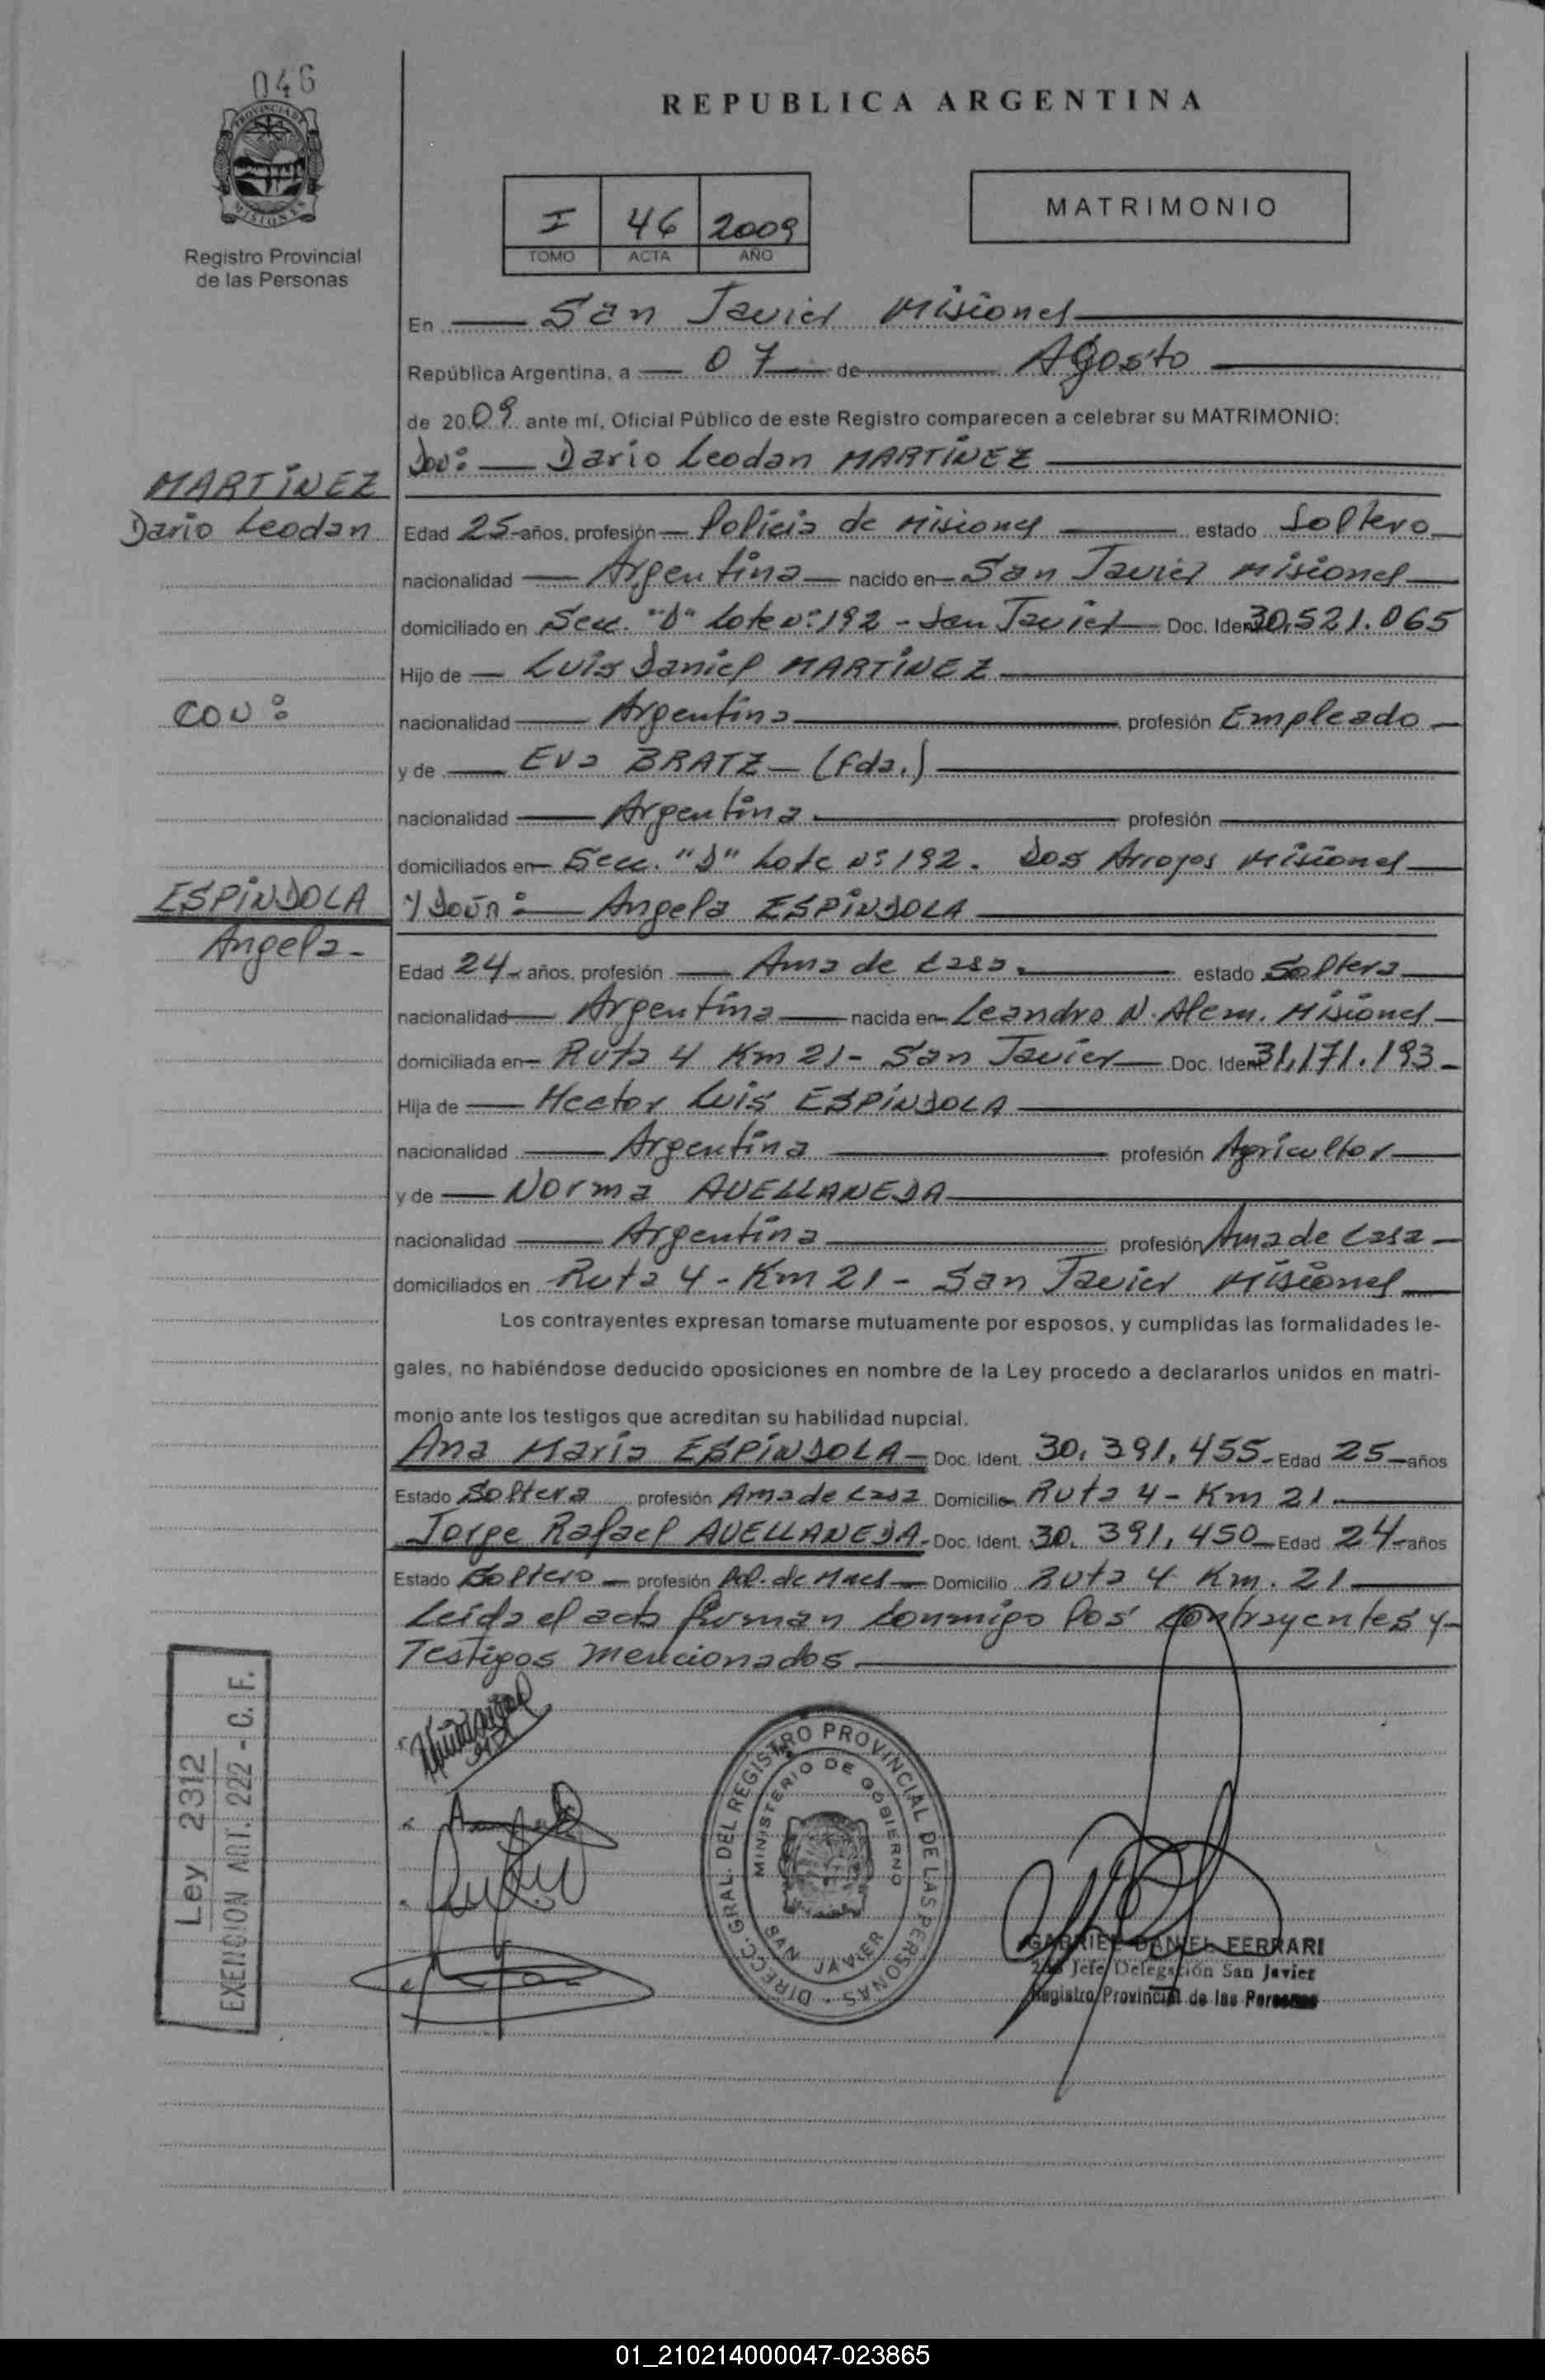 046
PROVINCIA DE
MISIONES
Registro Provincial
de las Personas
REPUBLICA ARGENTINA
I 46 2009
TOMO ACTA AÑO
MATRIMONIO
En San Javier Misiones
República Argentina, a 07 de Agosto
de 2009 ante mí, Oficial Público de este Registro comparecen a celebrar su MATRIMONIO:
Don: Dario Leodan MARTÍNEZ
MARTÍNEZ
Dario Leodan
Edad 25 años, profesión Policia de Misiones estado Soltero
nacionalidad Argentina nacido en San Javier Misiones
domiciliado en Secc. "D" Lote Nº 192 - San Javier Doc. Ident 30.521.065
Hijo de Luis Daniel MARTÍNEZ
CON:
nacionalidad Argentina profesión Empleado
y de Eva BRATZ - (fda.)
nacionalidad Argentina profesión
domiciliados en Secc. "D" Lote Nº 192. Dos Arroyos Misiones
ESPÍNDOLA
Angela-
Y Doña: Angela ESPÍNDOLA
Edad 24 años, profesión Ama de Casa. estado Soltera
nacionalidad Argentina nacida en Leandro N. Alem. Misiones
domiciliada en Ruta 4 Km 21 - San Javier Doc. Ident 31.171.193-
Hija de Hector Luis ESPÍNDOLA
nacionalidad Argentina profesión Agricultor
y de Norma AVELLANEDA
nacionalidad Argentina profesión Ama de Casa
domiciliados en Ruta 4 - Km 21 - San Javier Misiones
Los contrayentes expresan tomarse mutuamente por esposos, y cumplidas las formalidades le-
gales, no habiéndose deducido oposiciones en nombre de la Ley procedo a declararlos unidos en matri-
monio ante los testigos que acreditan su habilidad nupcial.
Ana María ESPÍNDOLA - Doc. Ident. 30.391.455- Edad 25 años
Estado Soltera profesión Ama de Casa Domicilio Ruta 4 - Km 21.
Jorge Rafael AVELLANEDA- Doc. Ident. 30.391.450 Edad 24 años
Estado Soltero profesión Pol. de Mnes Domicilio Ruta 4 Km. 21
Leída el acta firman conmigo los contrayentes y
Testigos mencionados.
Ley 2312
EXENCION ART. 222 - C. F.
DIRECC. GRAL. DEL REGISTRO PROVINCIAL DE LAS PERSONAS
MINISTERIO DE GOBIERNO
SAN JAVIER
GABRIEL DANIEL FERRARI
Jefe Delegación San Javier
Registro Provincial de las Personas
01_210214000047-023865